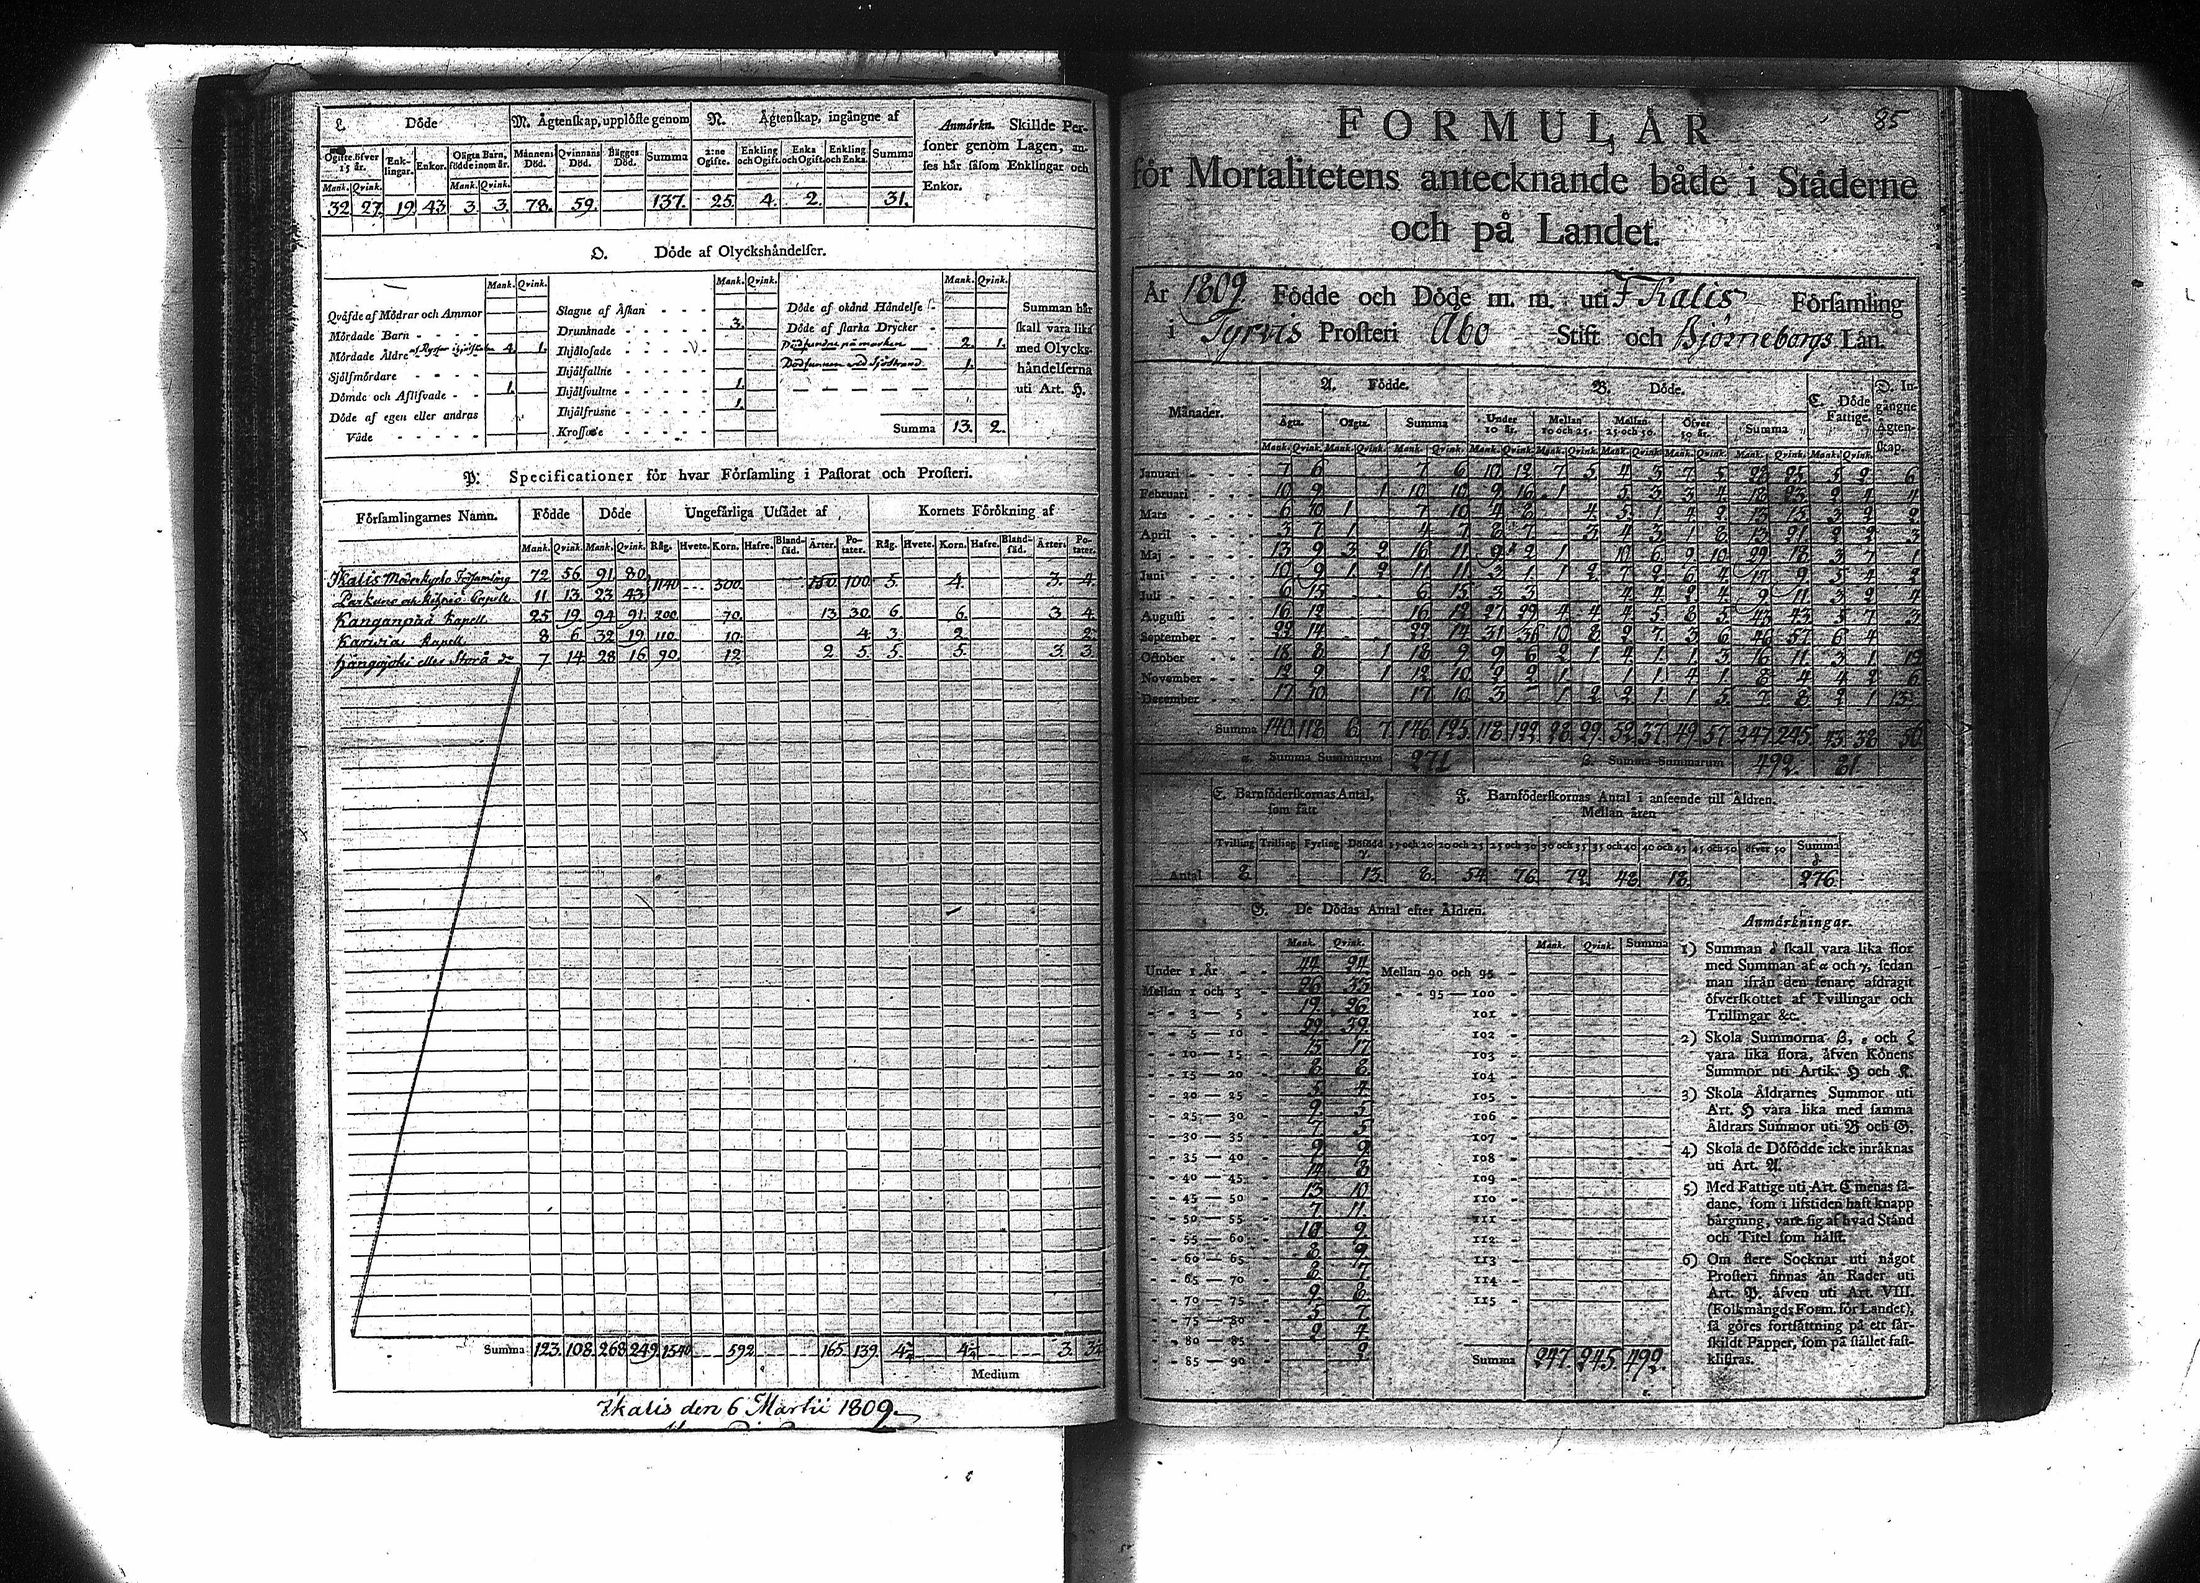 L. Döde M. Ägtenskap, upplöste genom N. Ägtenskap, ingångne af
Anmärkn. Skillde Personer genom Lagen, anses här såsom Enklingar och Enkor.
Ogifte öfver 15 år. Enklingar. Enkor. Oägta Barn, födde inom år. Männens Död. Qvinnans Död. Bägges Död. Summa 2:ne Ogifte. Enkling och Ogift. Enka och Ogift. Enkling och Enka. Summa
Mank. Qvink. Mank. Qvink.
32 27 19 43 3 3 78 59 137 25 4 2 31
O. Döde af Olyckshändelser.
Mank. Qvink. Mank. Qvink. Mank. Qvink.
Qväfde af Mödrar och Ammor
Mördade Barn
Mördade Äldre 4 1
Sjelfmördare
Dömde och Aflifvade 1
Döde af egen eller andras Våde
Slagne af Åskan
Drunknade 3
Ihjälofade
Ihjälfallne
Ihjälfvultne 1
Ihjälfrusne 1
Krossade
Döde af okänd Händelse
Döde af starka Drycker
Dödfundne på marken 2 1
Dödfunnen wid Sjöstrand 1
Summa 13 2
Summan här skall vara lika med Olyckshändelserna uti Art. H.
P. Specificationer för hvar Församling i Pastorat och Prosteri.
Församlingarnes Namn. Födde Döde Ungefärliga Utsädet af Kornets Förökning af
Mank. Qvink. Mank. Qvink. Råg. Hvete. Korn. Hafre. Blandsäd. Ärter. Potater. Råg. Hvete. Korn. Hafre. Blandsäd. Ärter. Potater.
Ikalis Moderkyrko Församling 72 56 91 80 1140 500 150 100 5 4 3 4
Parkano och Kihniö Capell 11 13 23 43
Kanganpää Kapell 25 19 94 91 200 70 13 30 6 6 3 4
Karvia Kapell 8 6 32 19 110 10 4 3 2 2
Hångojoki eller Storå do 7 14 28 16 90 12 2 5 5 5 3 3
Summa 123 108 268 249 1540 592 165 139 3
Medium
Ikalis den 6 Martii 1809.
85
FORMULÄR
för Mortalitetens antecknande både i Städerne
och på Landet.
År 1809 Födde och Döde m. m. uti Ikalis Församling
i Tyrvis Prosteri Åbo Stift och Björneborgs Län.
Månader. A. Födde. B. Döde. C. Döde Fattige. D. Ingångne Ägtenskap.
Ägta. Oägta. Summa Under 10 år. Mellan 10 och 25. Mellan 25 och 50. Öfver 50 år. Summa
Januari 7 6 7 6 10 12 7 5 4 3 7 5 28 25 5 2 6
Februari 10 9 1 10 10 9 16 1 5 3 3 4 18 23 2 4 4
Mars 6 10 1 7 10 4 8 4 5 1 4 2 13 15 3 2 2
April 3 7 1 4 7 8 7 3 4 3 1 8 13 21 2 2 3
Maj 13 9 3 2 16 11 9 2 1 10 6 9 10 29 18 3 7 1
Juni 10 9 1 2 11 11 3 1 1 2 7 2 6 4 17 9 5 4 2
Juli 6 15 6 15 3 3 4 4 2 4 9 11 3 2 4
Augusti 16 12 16 12 27 29 4 4 4 5 8 5 43 43 5 7 3
September 22 14 22 14 31 36 10 8 2 7 3 6 46 57 6 4
October 18 8 1 18 9 9 6 2 1 4 1 1 3 16 11 3 1 12
November 12 9 1 12 10 2 2 1 1 1 4 1 8 4 4 2 6
December 17 10 17 10 3 1 2 2 1 1 5 7 8 2 1 13
Summa 140 118 6 7 146 125 118 122 28 29 52 37 49 57 247 245 43 38 56
α. Summa Summarum 271 β. Summa Summarum 492. 81
E. Barnföderskornas Antal, som fått F. Barnföderskornas Antal i anseende till Åldren.
Mellan åren
Tvilling Trilling Fyrling Dödfödd γ. 15 och 20 20 och 25 25 och 30 30 och 35 35 och 40 40 och 45 45 och 50 öfver 50 Summa δ
Antal 8 13 8 54 76 72 48 18 276
G. De Dödas Antal efter Åldren.
Mank. Qvink. Mank. Qvink. Summa
Under 1 År 44 24
Mellan 1 och 3 26 33
3 — 5 19 26
5 — 10 29 39
10 — 15 15 17
15 — 20 8 8
20 — 25 5 4
25 — 30 9 5
30 — 35 7 5
35 — 40 9 9
40 — 45 14 8
45 — 50 13 10
50 — 55 7 11
55 — 60 10 9
60 — 65 8 9
65 — 70 8 7
70 — 75 9 8
75 — 80 5 7
80 — 85 2 4
85 — 90 2
Mellan 90 och 95
95 — 100
101
102
103
104
105
106
107
108
109
110
111
112
113
114
115
Summa 247. 245. 492.
Anmärkningar.
1) Summan δ skall vara lika stor
med Summan af α och γ, sedan
man ifrån den senare afdragit
öfverskottet af Tvillingar och
Trillingar &c.
2) Skola Summorna β, ε och ζ
vara lika stora, äfven Könens
Summor uti Artik. H och K.
3) Skola Åldrarnes Summor uti
Art. H vara lika med samma
Åldrars Summor uti B och G.
4) Skola de Döfödde icke inräknas
uti Art. A.
5) Med Fattige uti Art. C menas sådane, som i lifstiden haft knapp
bärgning, vare sig af hvad Stånd
och Titel som hälst.
6) Om flere Socknar uti något
Prosteri finnas än Rader uti
Art. P, äfven uti Art. VIII.
(Folkmängds Form. för Landet),
så göres fortsättning på ett särskildt Papper, som på stället fastklistras.